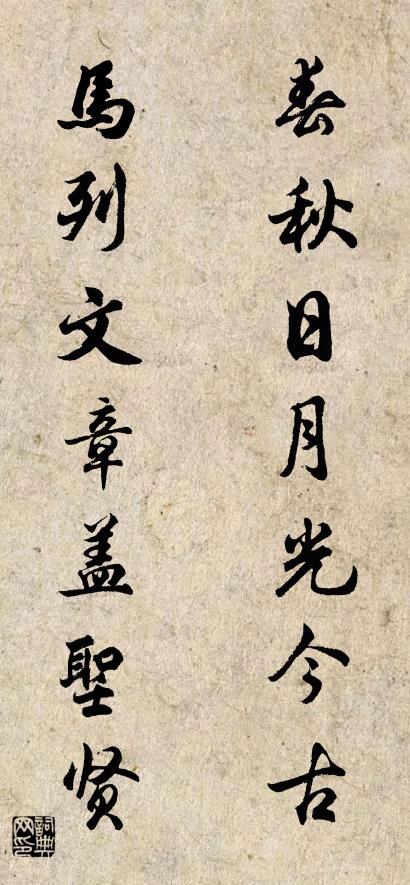 春秋日月光今古
馬列文章盖聖贤
詞典网印